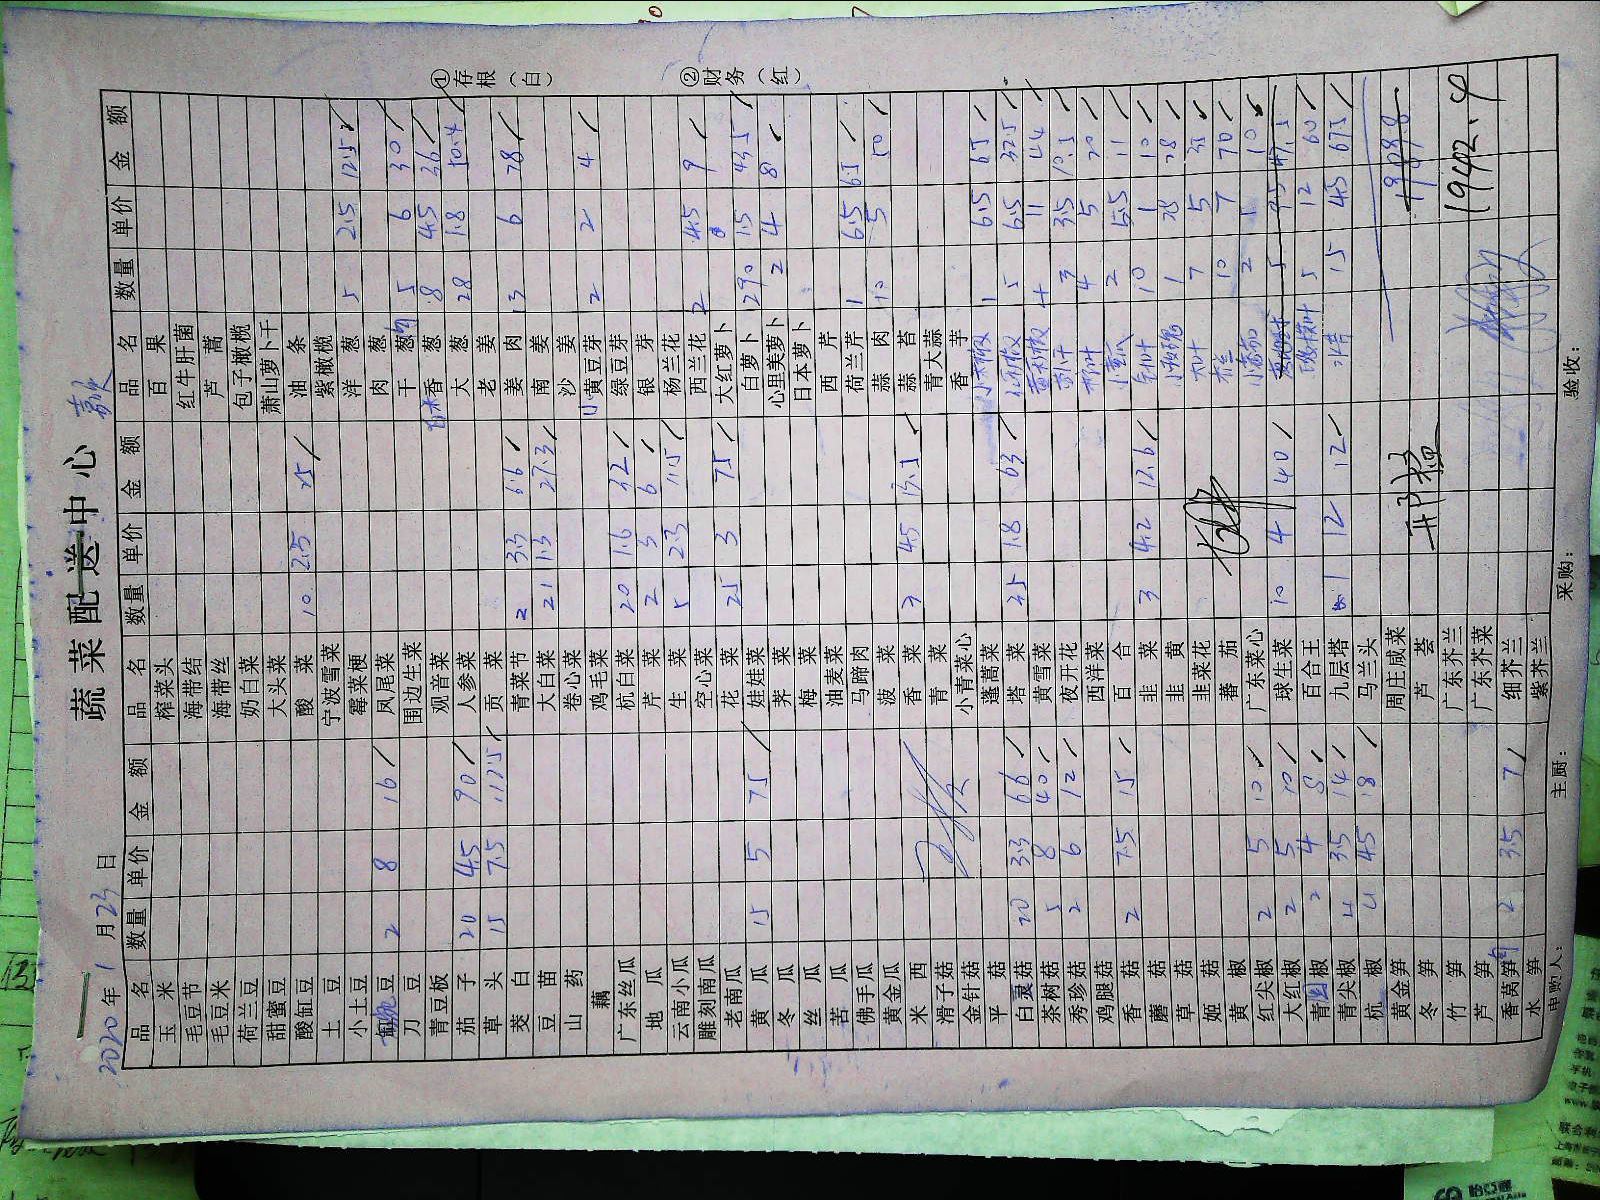 蔬菜配送中心
2020年1月23日
品名 数量 单价 金额 品名 数量 单价 金额 品名 数量 单价 金额
玉米 榨菜头 百果
毛豆节 海带结 红牛肝菌
毛豆米 海带丝 芦蒿
荷兰豆 奶白菜 包子橄榄
甜蜜豆 大头菜 萧山萝卜干
酸缸豆 酸菜 10 2.5 25 油条
土豆 宁波雪菜 紫橄榄
小土豆 霉菜梗 洋葱 5 2.5 12.5
豆 2 8 16 凤尾菜 肉葱
刀豆 围边生菜 干葱 5 6 30
青豆板 观音菜 香葱 8 4.5 36
茄子 20 4.5 90 人参菜 大葱 28 1.8 50.4
草头 15 7.5 112.5 贡菜 老姜
茭白 青菜节 2 3.3 6.6 姜肉 13 6 78
豆苗 大白菜 21 1.3 27.3 南姜
山药 卷心菜 沙姜
藕 鸡毛菜 黄豆芽 2 2 4
广东丝瓜 杭白菜 20 1.6 32 绿豆芽
地瓜 芹菜 2 3 6 银芽
云南小瓜 生菜 5 2.3 11.5 杨兰花
雕刻南瓜 空心菜 西兰花 2 4.5 9
老南瓜 花菜 25 3 75 大红萝卜
黄瓜 15 5 75 娃娃菜 白萝卜 290 1.5 435
冬瓜 荠菜 心里美萝卜 2 4 8
丝瓜 梅菜 日本萝卜
苦瓜 油麦菜 西芹
佛手瓜 马蹄肉 荷兰芹 1 6.5 6.5
黄金瓜 菠菜 蒜肉 10 5 50
米西 香菜 3 4.5 13.5 蒜苔
滑子菇 青菜 青大蒜
金针菇 小青菜心 香芋
平菇 蓬蒿菜 小米椒 1 6.5 6.5
白灵菇 20 3.3 66 塔菜 35 1.8 63 5 6.5 32.5
茶树菇 5 8 40 黄雪菜 4 11 44
秀珍菇 2 6 12 夜开花 3 3.5 10.5
鸡腿菇 西洋菜 4 5 20
香菇 2 7.5 15 百合 2 5.5 11
蘑菇 韭菜 3 4.2 12.6 10 1 10
草菇 韭黄 1 28 28
姬菇 韭菜花 7 5 35
黄椒 蕃茄 10 7 70
红尖椒 2 5 10 广东菜心 2 5 10
大红椒 2 5 10 球生菜 10 4 40 5 9.5 47.5
青圆椒 2 4 8 百合王 5 12 60
青尖椒 4 3.5 14 九层塔 1 12 12 15 4.5 67.5
杭椒 4 4.5 18 马兰头
黄金笋 周庄咸菜 1908.8
冬笋 芦荟
竹笋 广东芥兰 1942.4
芦笋 广东芥菜
香莴笋 2 3.5 7 细芥兰
水笋 紫芥兰
申购人： 主厨： 采购： 验收：
①存根（白） ②财务（红）